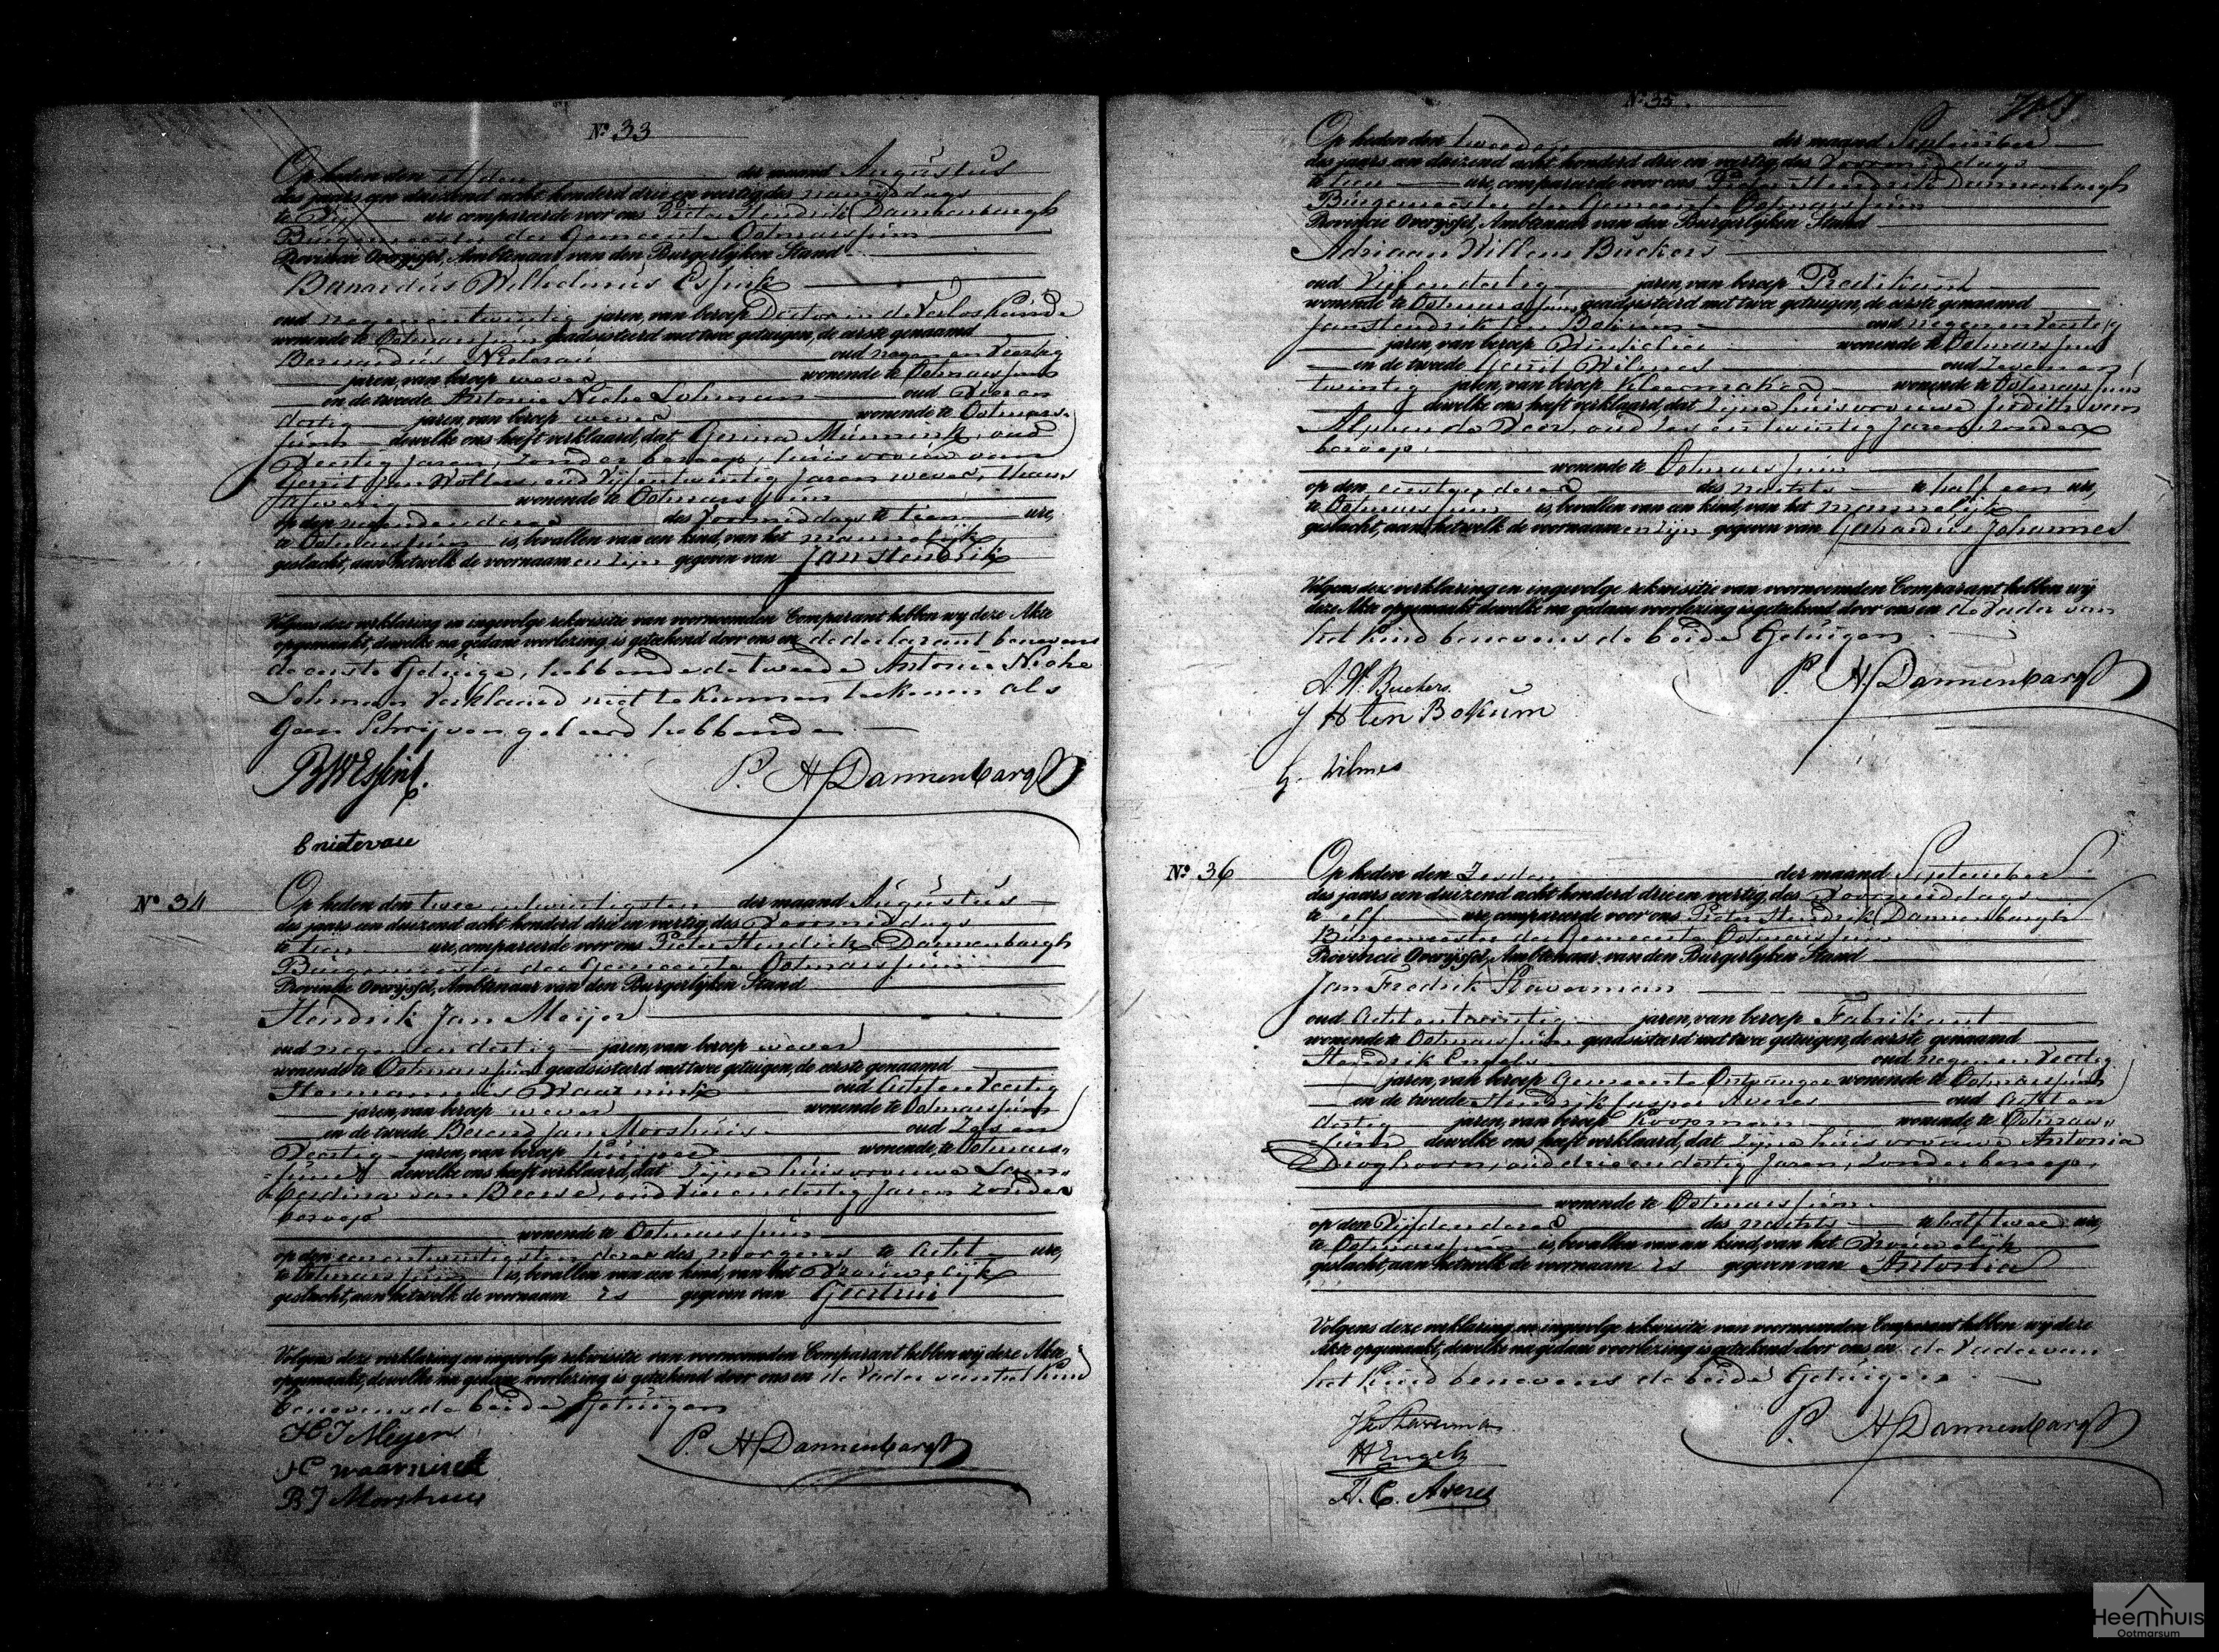 Nº 33
Op heden den elfden der maand Augustus
des jaars een duizend acht honderd drie en veertig, des namiddags
te vijf ure compareerde voor ons Pieter Hendrik Dannenbargh
Burgemeester der Gemeente Ootmarssum
Provincie Overijssel, Ambtenaar van den Burgerlijken Stand
Barardus Wilhelmus Essink
oud negenentwintig jaren, van beroep Doctor in de Verloskunde
wonende te Ootmarssum geadsisteerd met twee getuigen, de eerste genaamd
Bernardus oud negen en Veertig
jaren, van beroep wever wonende te Ootmarssum
en de tweede Antonie Niehe Lohman oud Vier en
dertig jaren, van beroep wever wonende te Ootmars-
sum dewelke ons heeft verklaard, dat Gesina Munnink, oud
Veertig Jaren, zonder beroep, huisvrouw van
Gerrit Jan Wolters, oud Vijfentwintig Jaren wever, thans
afwezig wonende te Ootmarssum
op den negenden dezer des Voormiddags te tien ure,
te Ootmarssum is bevallen van een kind, van het mannelijk
geslacht, aan hetwelk de voornaam en zijn gegeven van Jan Hendrik
Volgens deze verklaring en ingevolge rekwisitie van voornoemden Comparant hebben wij deze Akte
opgemaakt, dewelke na gedane voorlezing is getekend door ons en de declarant benevens
de eerste Getuige, hebbende de tweede Antonie Niehe
Lohman verklaard niet te kunnen teekenen als
Geen Schrijven geleerd hebbende
BWEssink.
P. H Dannenbargh
Nº 34
Op heden den twee en twintigsten der maand Augustus
des jaars een duizend acht honderd drie en veertig, des Voormiddags
te tien ure, compareerde voor ons Pieter Hendrik Dannenbargh
Burgemeester der Gemeente Ootmarssum
Provincie Overijssel, Ambtenaar van den Burgerlijken Stand
Hendrik Jan Meijer
oud negen en dertig jaren, van beroep wever
wonende te Ootmarssum geadsisteerd met twee getuigen, de eerste genaamd
Hermannus Waarnink oud Acht en Veertig
jaren, van beroep wever wonende te Ootmarssum
en de tweede Berend Jan Morshuis oud Zes en
Veertig jaren, van beroep wonende te Ootmars-
sum dewelke ons heeft verklaard, dat zijne huisvrouwe Lam-
berdina van Deerse, oud Vier en dertig Jaren zonder
beroep
wonende te Ootmarssum
op den een en twintigsten dezer des morgens te Acht ure,
te Ootmarssum is bevallen van een kind, van het Vrouwelijk
geslacht, aan hetwelk de voornaam is gegeven van Geertrui
Volgens deze verklaring en ingevolge rekwisitie van voornoemden Comparant hebben wij deze Akte
opgemaakt, dewelke na gedane voorlezing is getekend door ons en de Vader van het kind
benevens de beide Getuigen
HJ Meyer
P. H Dannenbargh
H waarninck
BJ Morshuis
Nº 35
Op heden den tweeden der maand September
des jaars een duizend acht honderd drie en veertig, des Voormiddags
te tien ure, compareerde voor ons Pieter Hendrik Dannenbargh
Burgemeester der Gemeente Ootmarssum
Provincie Overijssel, Ambtenaar van den Burgerlijken Stand
Adriaan Willem Buekers
oud Vijf en dertig jaren, van beroep Predikant
wonende te Ootmarssum, geadsisteerd met twee getuigen, de eerste genaamd
Jan Hendrik ten Bokum oud negen en Veertig
jaren, van beroep wonende te Ootmarssum
en de tweede Gerrit Wilmes oud Zeven en
twintig jaren, van beroep Kleermaker wonende te Ootmarssum
dewelke ons heeft verklaard, dat zijne huisvrouwe Judith van
Alphen de Veer, oud Zes en twintig Jaren, zonder
beroep,
wonende te Ootmarssum
op den eersten dezer des nachts te half een ure,
te Ootmarssum is bevallen van een kind, van het mannelijk
geslacht, aan hetwelk de voornaam en zijn gegeven van Gerhardus Johannes
Volgens deze verklaring en ingevolge rekwisitie van voornoemden Comparant hebben wij
deze Akte opgemaakt dewelke na gedane voorlezing is getekend door ons en de Vader van
het kind benevens de beide Getuigen
A. W. Buekers.
P. H Dannenbargh
J H ten Bokum
G. Wilmes
Nº 36
Op heden den Zesden der maand September
des jaars een duizend acht honderd drie en veertig, des Voormiddags
te elf ure, compareerde voor ons Pieter Hendrik Dannenbargh
Burgemeester der Gemeente Ootmarssum
Provincie Overijssel, Ambtenaar van den Burgerlijken Stand
Jan Fredrik Staverman
oud Acht en twintig jaren, van beroep Fabrikant
wonende te Ootmarssum geadsisteerd met twee getuigen, de eerste genaamd
Hendrik Engels oud negen en Veertig
jaren, van beroep Gemeente Ontvanger wonende te Ootmarssum
en de tweede Hendrik Averes oud Acht en
dertig jaren, van beroep Koopman wonende te Ootmars-
sum dewelke ons heeft verklaard, dat zijne huisvrouwe Antonia
Drooghoorn, oud drie en dertig Jaren, zonder beroep,
wonende te Ootmarssum
op den Vijfden dezer des nachts te half twee ure,
te Ootmarssum is bevallen van een kind, van het Vrouwelijk
geslacht, aan hetwelk de voornaam is gegeven van Antonia
Volgens deze verklaring en ingevolge rekwisitie van voornoemden Comparant hebben wij deze
Akte opgemaakt, dewelke na gedane voorlezing is getekend door ons en de Vader van
het kind benevens de beide Getuigen
P. H Dannenbargh
H Engels
Averes
Heemhuis
Ootmarsum